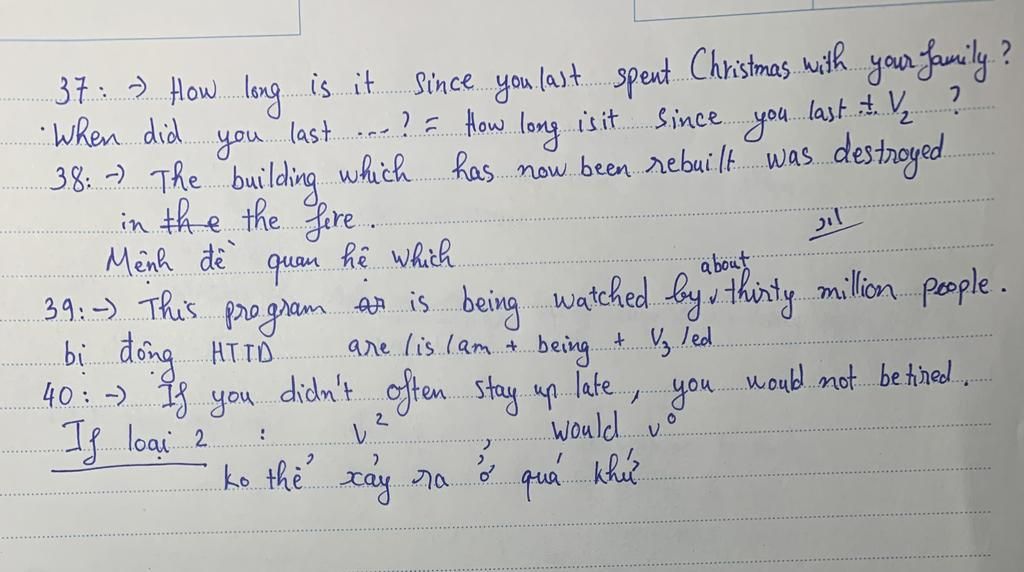 37: → How long is it since you last spent Christmas with your family?
When did you last ...? = How long is it since you last + V2 ?
38: → The building which has now been rebuilt was destroyed
in the the fire.
Mệnh đề quan hệ which
about
39: → This program is being watched by thirty million people.
bị động HTTD are / is / am + being + V3 / ed
40: → If you didn't often stay up late, you would not be tired.
If loại 2 : V2 , would vo
ko thể xảy ra ở quá khứ